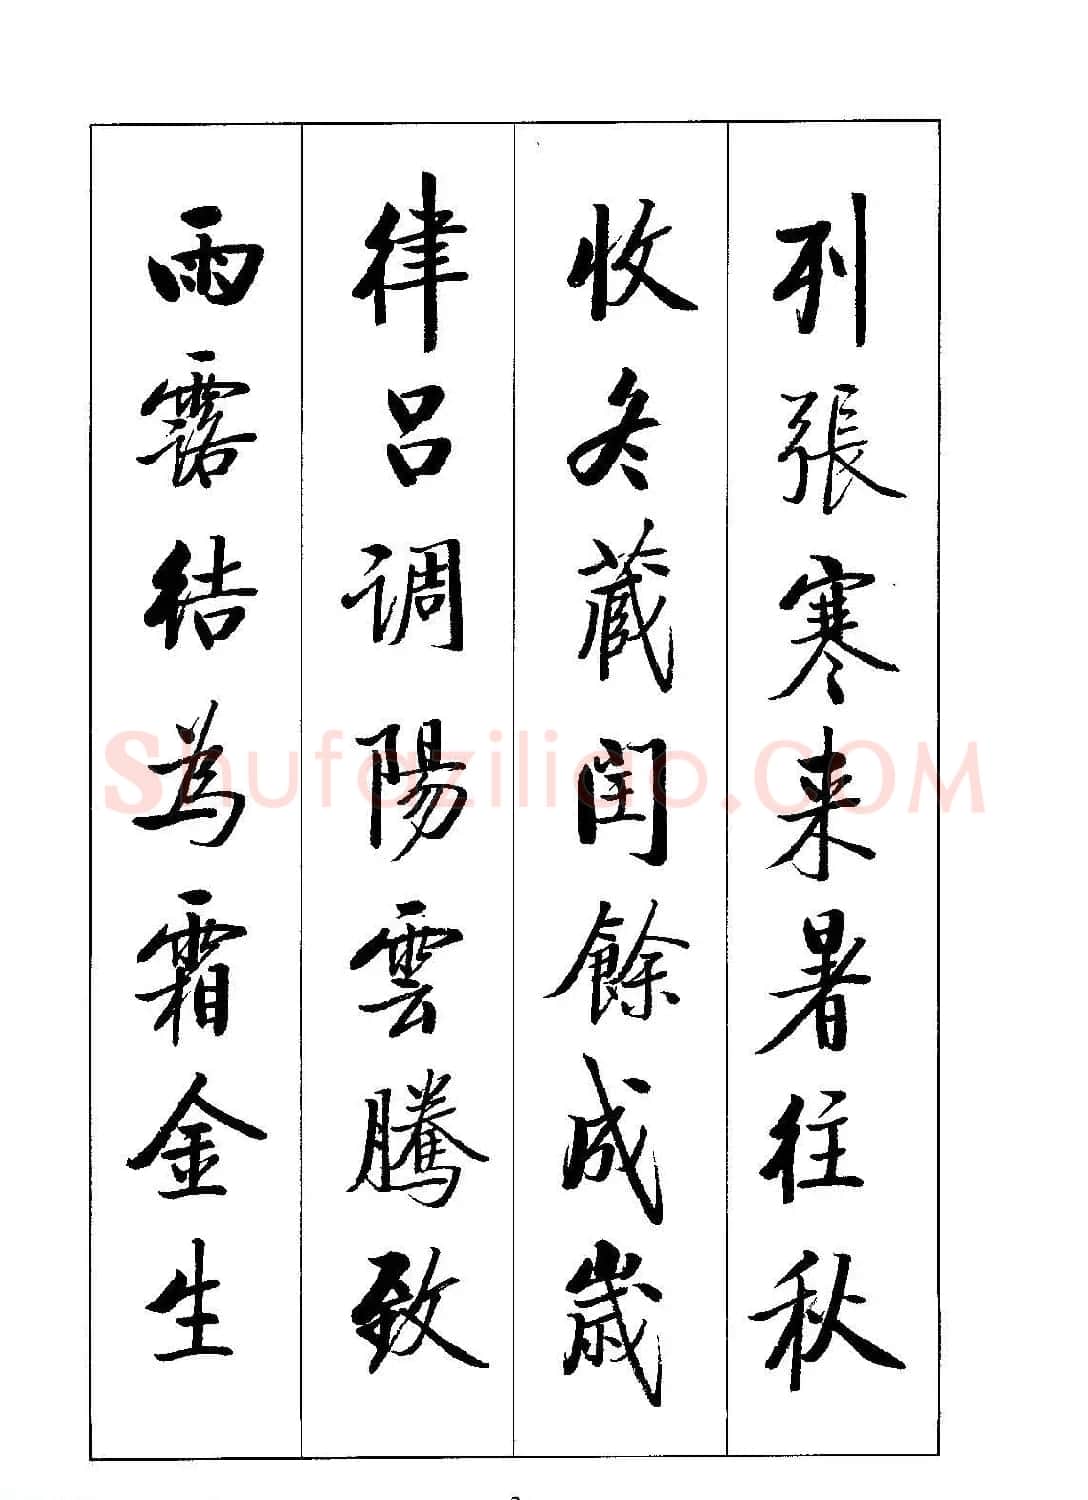 列張寒来暑往秋
收冬蔵閏餘成歳
律吕调陽雲騰致
雨露结為霜金生
Shufaziliao.COM